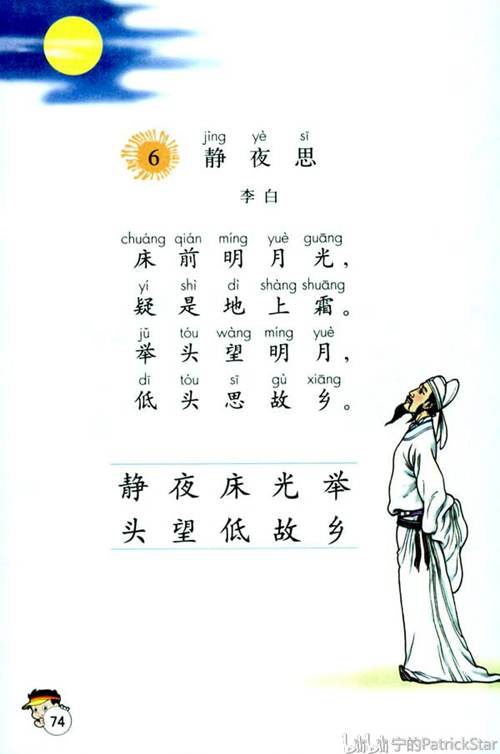 jìng yè sī
6 静夜思
李白
chuáng qián míng yuè guāng
床前明月光，
yí shì dì shàng shuāng
疑是地上霜。
jǔ tóu wàng míng yuè
举头望明月，
dī tóu sī gù xiāng
低头思故乡。
静夜床光举
头望低故乡
74
宁的PatrickStar